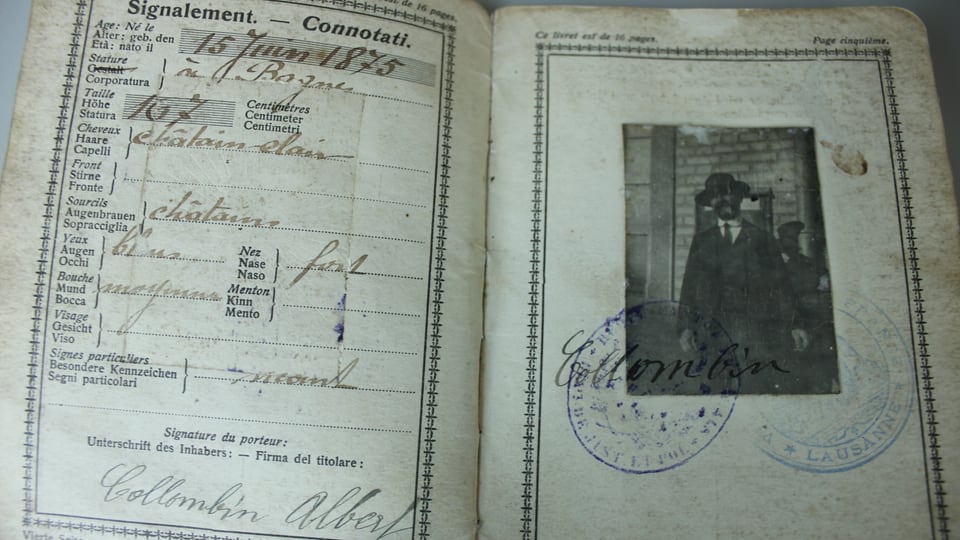 est de 16 pages.
Signalement. — Connotati.
Age: Né le
Alter: geb. den
Età: nato il
15 Juin 1875
Stature
Gestalt
Corporatura
à Bagnes
Taille
Höhe
Statura
Centimètres
Centimeter
Centimetri
Cheveux
Haare
Capelli
châtain clair
Front
Stirne
Fronte
Sourcils
Augenbrauen
Sopracciglia
châtains
Yeux
Augen
Occhi
bleus
Nez
Nase
Naso
fort
Bouche
Mund
Bocca
moyenne
Menton
Kinn
Mento
Visage
Gesicht
Viso
Signes particuliers
Besondere Kennzeichen
Segni particolari
Signature du porteur:
Unterschrift des Inhabers: — Firma del titolare:
Collombin Albert
Ce livret est de 16 pages.
Page cinquième.
Collombin
JUST ET POL
LAUSANNE